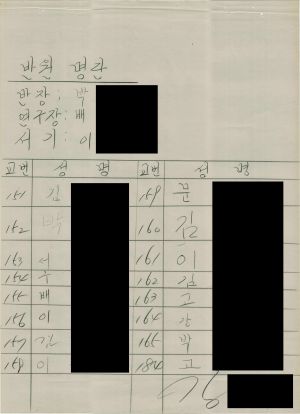 반원 명란
반장: 박
연구장: 배
서기: 이
교번 성 명 교번 성 명
151 김 159 문
152 박 160 김
153 서 161 이
154 우 162 김
155 배 163 고
156 이 164 강
157 김 165 박
158 이 184 고